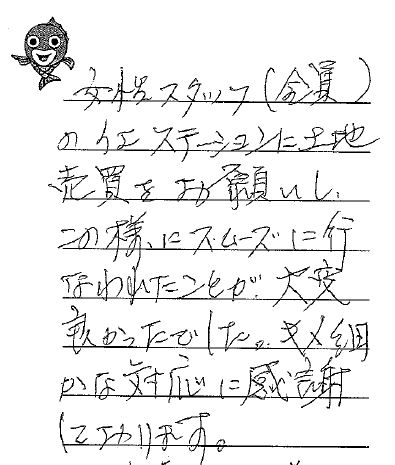 女性スタッフ(全員)
のイエステーションに土地
売買をお願いし、
この様にスムーズに行
なわれたことが、大変
良かったでした。キメ細
かな対応に感謝
しております。